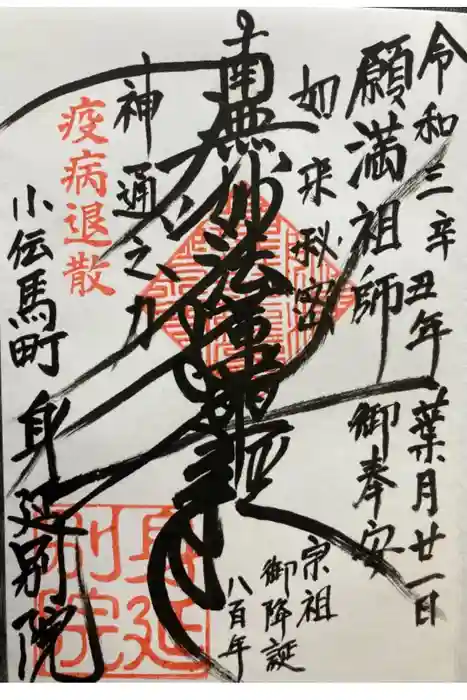 令和三辛丑年葉月廿一日
願満祖師御奉安
如来秘密
南無妙法蓮華経
神通之力
疫病退散
宗祖
御降誕
八百年
小伝馬町身延別院
身延
別院